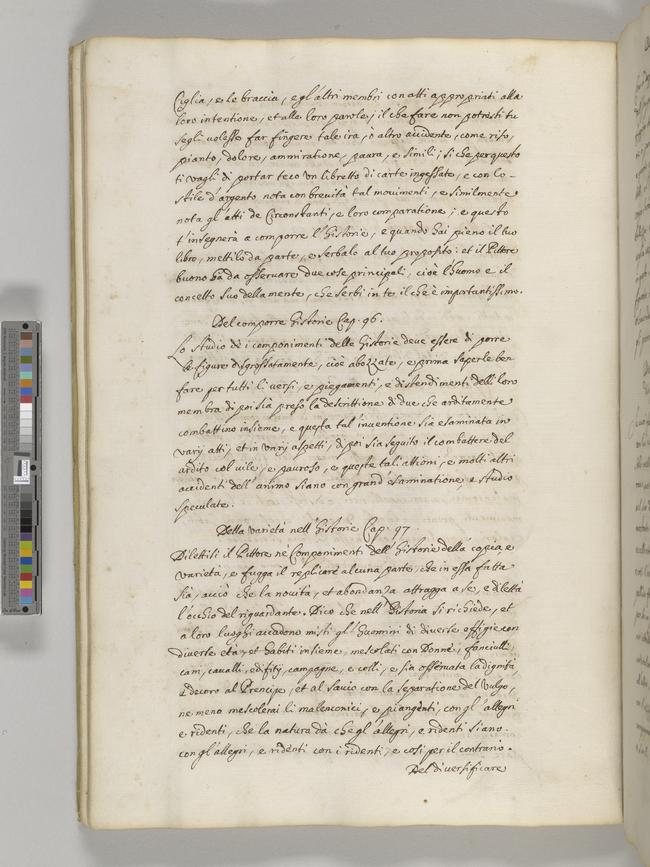 Ciglia, e le braccia, e gl'altri membri con atti appropriati alla
loro intentione, et alle loro parole; il che fare non potresti tu
se gli volesse far fingere tale ira, ò altro accidente, come riso,
pianto, dolore, ammiratione, paura, e simili; si che per questo
ti vagli di portar teco un libretto di carte ingessate, e con lo
stile d'argento nota con brevità tal movimenti, e similmente
nota gl'atti de Circonstanti, e loro comparatione; e questo
t'insegnerà a comporre l'historie, e quando hai pieno il tuo
libro, mettilo da parte, e serbalo al tuo proposito: et il Pittore
buono hà da osservare due cose principali, cioè l'huomo e il
concetto suo della mente, che serbi in te il che è importantissimo.
Del comporre historie Cap. 96.
Lo studio de i componimenti delle historie deve essere di porre
le figure disgrossatamente, cioè abozzate, e prima saperle ben
fare per tutti li versi, e piegamenti, e distendimenti delli loro
membra di poi sia preso la descrittione di due che arditamente
combattino insieme, e questa tal'inventione sia esaminata in
varij atti, et in varij aspetti, di poi sia seguito il combattere del
ardito col vile, e pauroso, e queste tali attioni, e molti altri
accidenti dell'animo siano con grand'esaminatione e studio
speculate.
Della varietà nell'historie Cap. 97.
Dilettisi il Pittore ne Componimenti dell'historie della copia, e
varietà, e fugga il replicare alcuna parte, che in essa fatta
sia, acciò che la novità, et abondanza attragga a se, e diletta
l'occhio del riguardante. Dico che nell'historia si richiede, et
a loro luoghi accadono misti gl'huomini di diverse effigie con
diverse età, et habiti insieme, mescolati con Donne, fanciulli,
cani, cavalli, edifitij, campagne, e colli, e sia osservata la dignità,
e decoro al Prencipe, et al savio con la separatione del vulgo,
ne meno mescolerai li malenconici, e piangenti, con gl'allegri
e ridenti, che la natura dà che gl'allegri, e ridenti siano
con gl'allegri, e ridenti con i ridenti, e cosi per il contrario.
Del diversificare